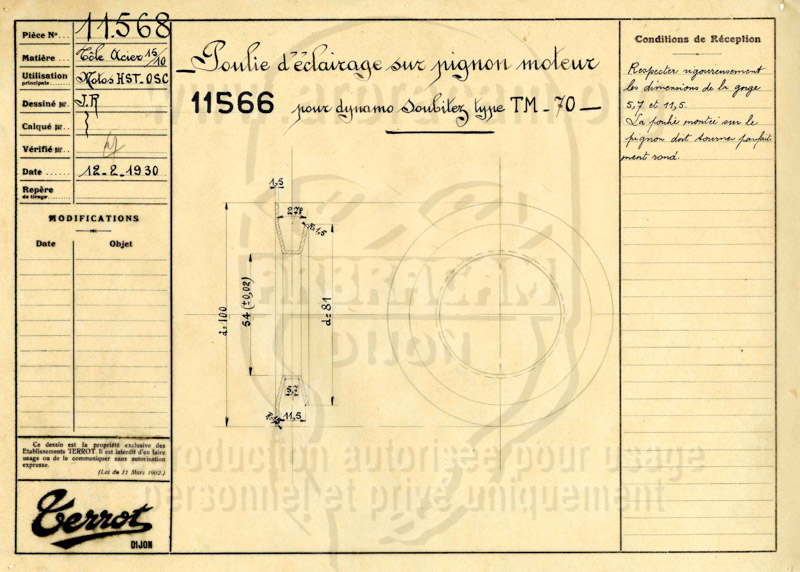 Pièce No. 11.568
Matière Tôle Acier 15/10
Utilisation principale Motos HST_OSC
Dessiné par J.R
Calqué par
Vérifié par
Date 12_2_1930
Repère de tirage
MODIFICATIONS
Date Objet
Ce dessin est la propriété exclusive des
Etablissements TERROT. Il est interdit d'en faire
usage ou de le communiquer sans autorisation
expresse.
(Loi du 11 Mars 1902.)
Terrot
DIJON
_Poulie d'éclairage sur pignon moteur
11566 pour dynamo Soubitez type TM_70_
1,5
R=1,5
d=100
54 (±0,02)
d=81
5,7
R=1,5
11,5
Conditions de Réception
Respecter rigoureusement
les dimensions de la gorge
5,7 et 11,5.
La poulie montée sur le
pignon doit tourner parfait
ment rond.
ARBRACAM
DIJON
production autorisée pour usage
personnel et privé uniquement